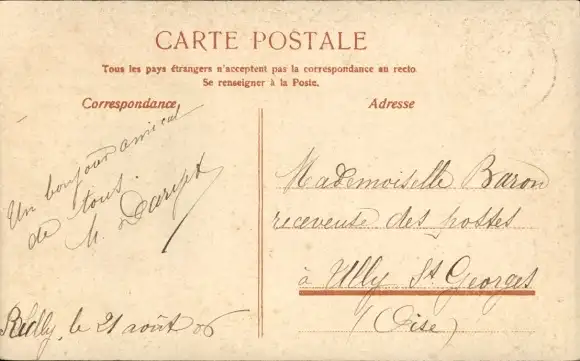 CARTE POSTALE
Tous les pays étrangers n'acceptent pas la correspondance au recto
Se renseigner à la Poste.
Correspondance
Adresse
Un bonjour amical
de tous.
M.
Mademoiselle Baron
receveuse des postes
à Ully St Georges
(Oise)
le 21 août 06